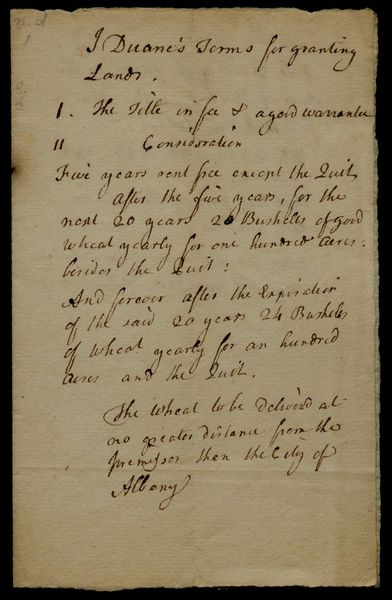 n.d
1
J Duane's Terms for granting
Lands.
I. The Title in fee & a good warrantee
II Consideration
Five years rent free except the Quit
After the five years, for the
next 20 years 20 Bushells of good
Wheat yearly for one hundred acres.
besides the Quit:
And forever after the Expiration
of the said 20 years 24 Bushells
of Wheat yearly for an hundred
acres and the Quit.
The wheat to be deliver'd at
no greater distance from the
premisses than the City of
Albany